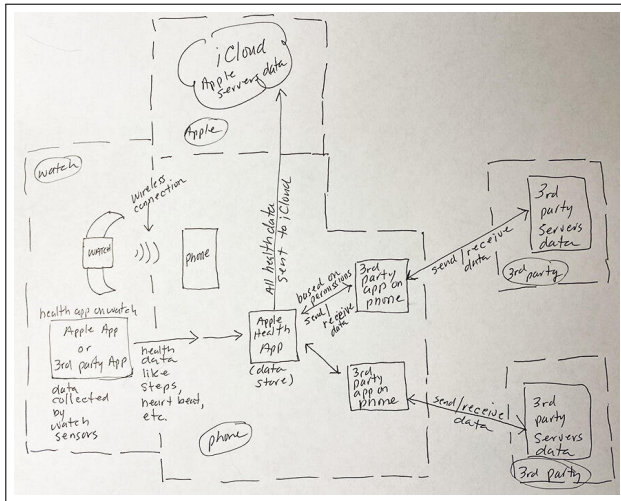 iCloud
Apple
servers data
Apple
watch
wireless
connection
WATCH
phone
All health data
sent to iCloud
health app on watch
Apple App
or
3rd party App
data
collected
by
watch
sensors
health
data
like
steps,
heart beat,
etc.
Apple
Health
App
(data
store)
based on
permissions
send/
receive
data
3rd
party
app on
phone
3rd
party
app on
phone
phone
send/receive
data
3rd
party
Servers
data
3rd party
send/receive
data
3rd
party
Servers
data
3rd party